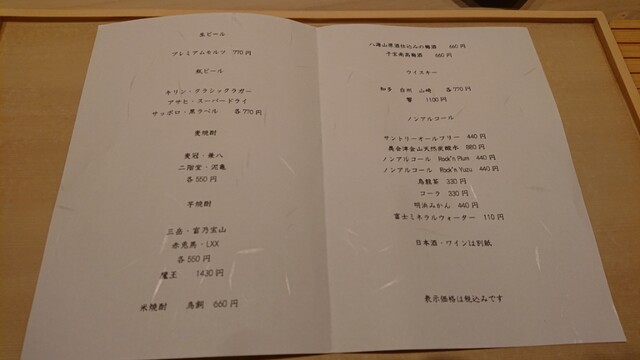 生ビール
プレミアムモルツ 770円
瓶ビール
キリン・クラシックラガー
アサヒ・スーパードライ
サッポロ・黒ラベル 各770円
麦焼酎
兼八
二階堂・泥亀
各550円
芋焼酎
三岳・富乃宝山
赤兎馬・LXX
各550円
魔王 1430円
米焼酎 鳥飼 660円
八海山原酒仕込みの梅酒 660円
660円
ウイスキー
知多 白州 山崎 各770円
響 1100円
ノンアルコール
サントリーオールフリー 440円
奥会津金山天然炭酸水 880円
ノンアルコール Rock'n Plum 440円
ノンアルコール Rock'n Yuzu 440円
烏龍茶 330円
コーラ 330円
明浜みかん 440円
富士ミネラルウォーター 110円
日本酒・ワインは別紙
表示価格は税込みです